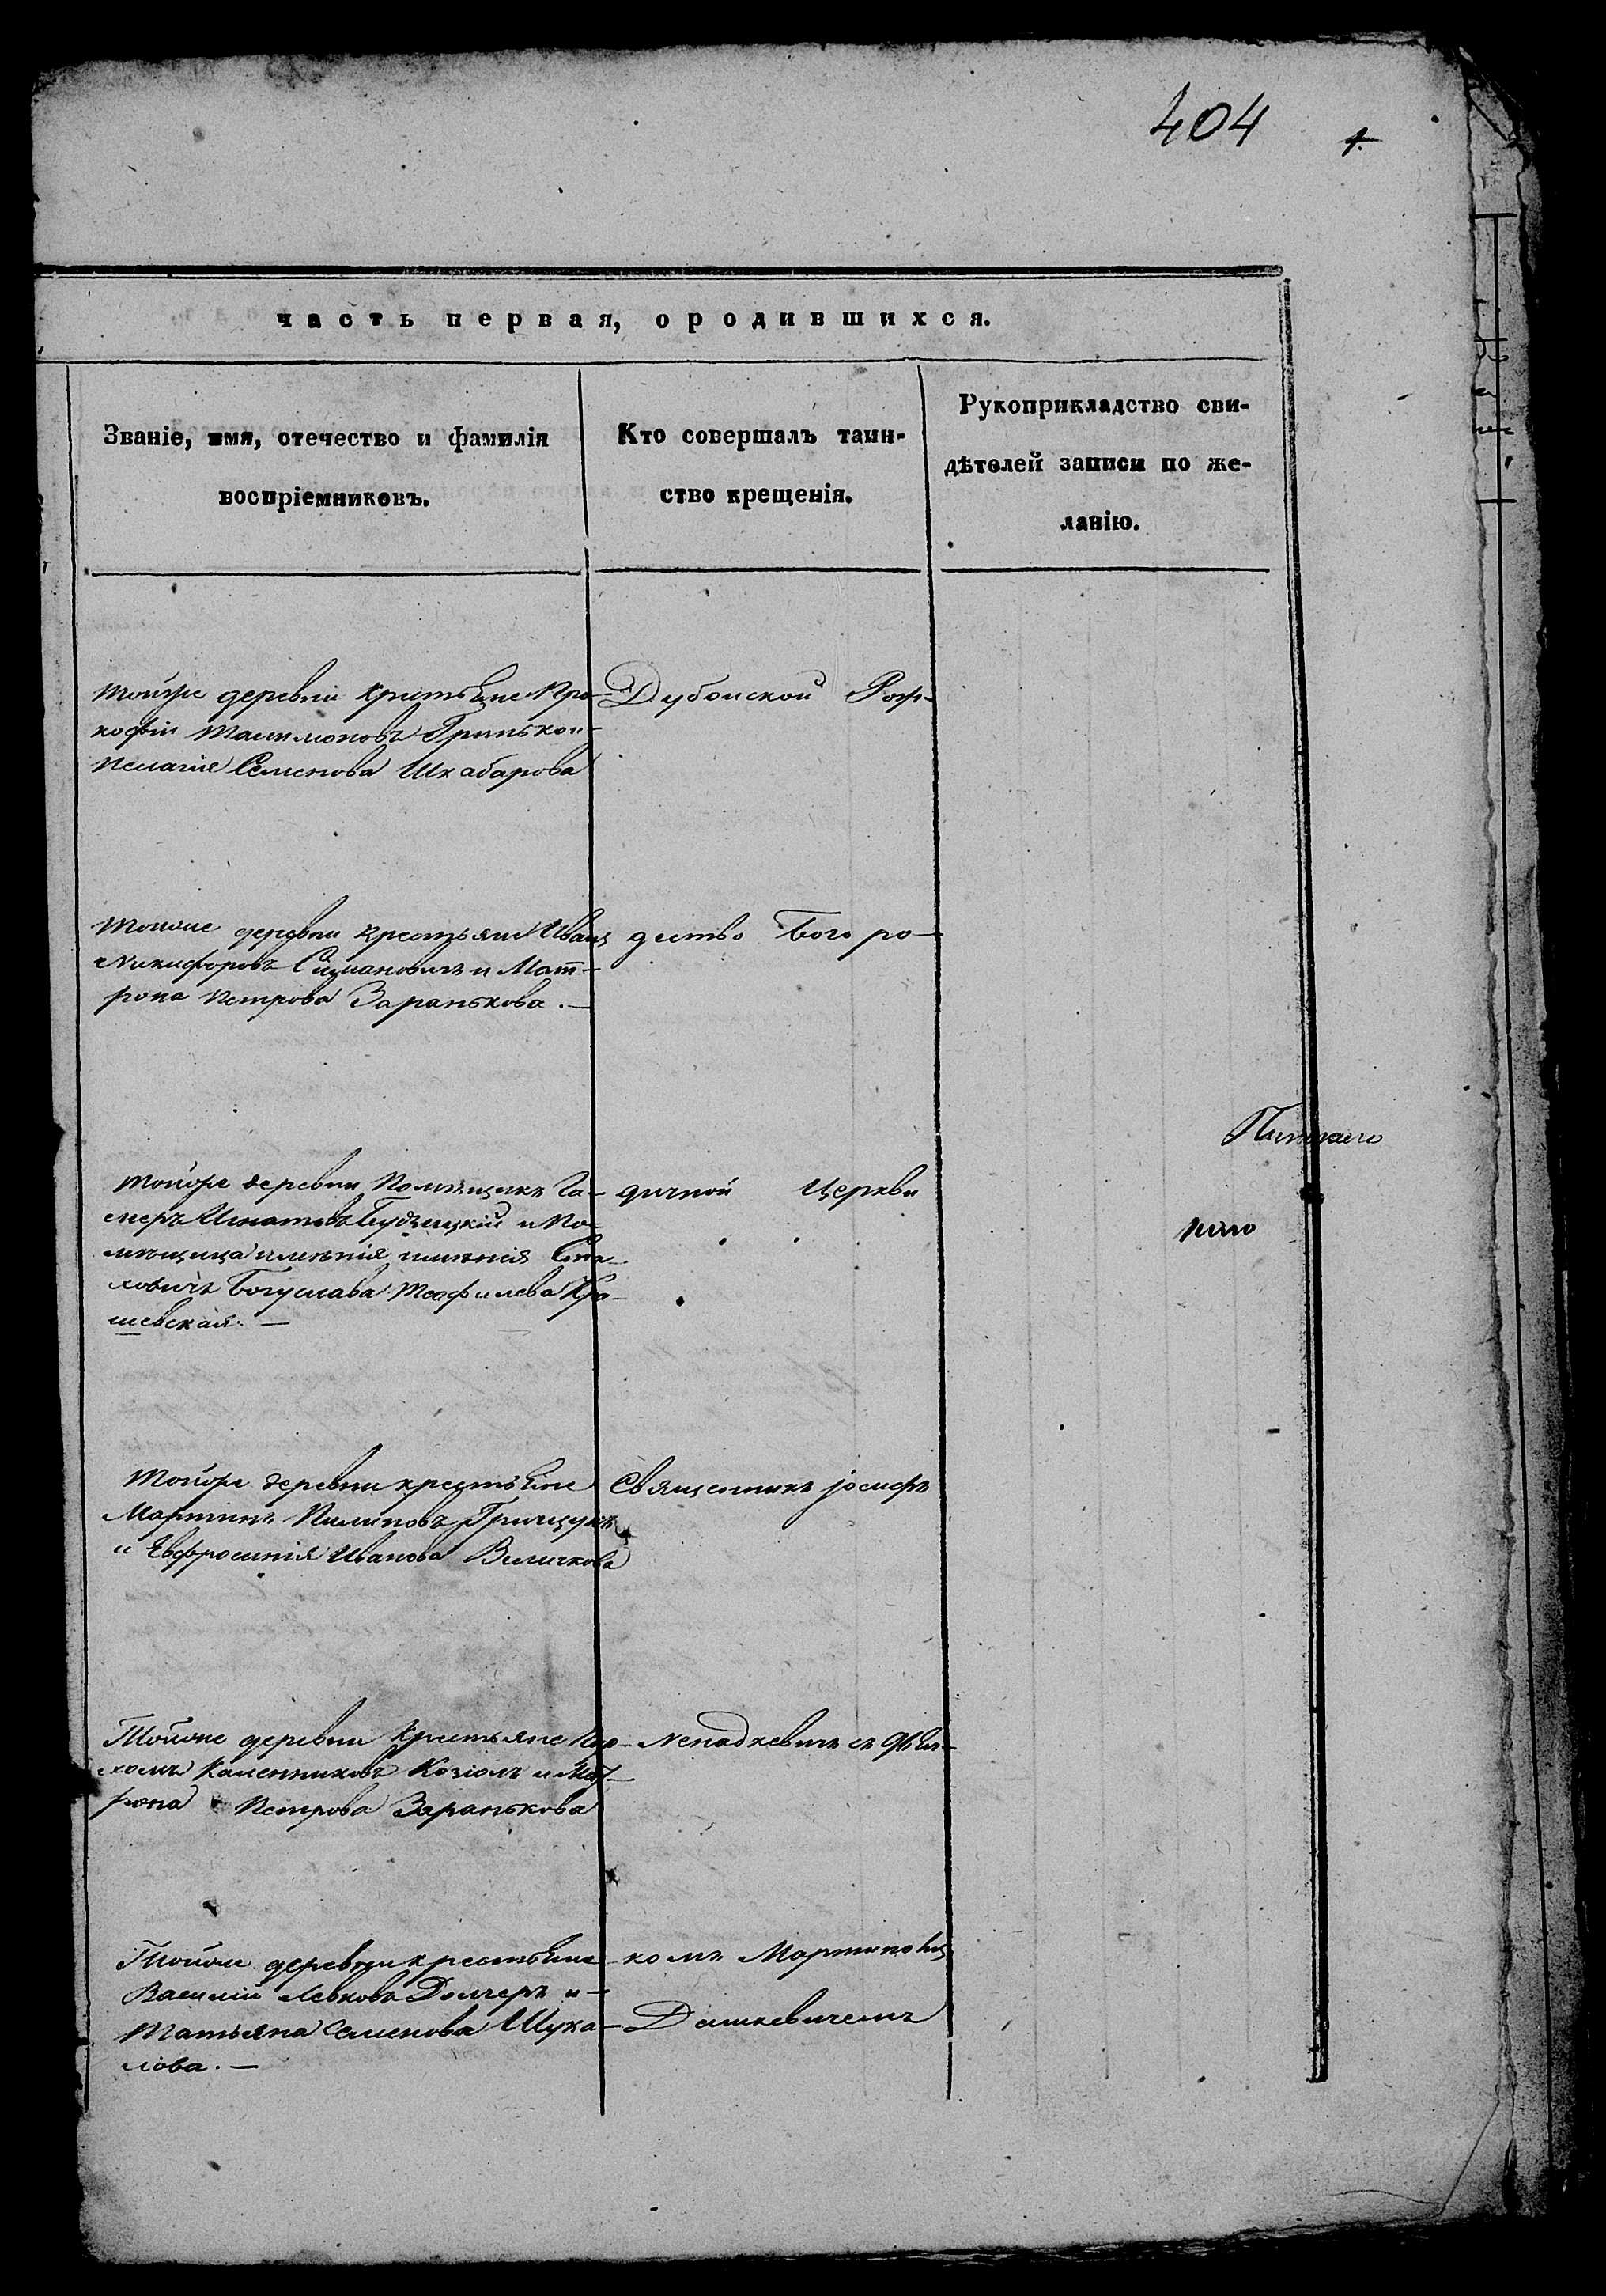 404 1.
часть первая, ородившихся.
Званіе, имя, отечество и фамилія
воспріемниковъ.
Кто совершалъ таин-
ство крещенія.
Рукоприкладство сви-
дѣтелей записи по же-
ланію.
Тойже деревни крестьяне Про-
кофій Гринько и
Пелагія Семенова Шкабарова
Дубойской Рож-
Тойже деревни крестьяне Иванъ
Никифоровъ и Мат-
рона Петрова Заранькова. —
дество Богоро-
Тойже деревни Помѣщикъ
Игнатовъ и По-
мѣщица имѣнія имѣнія
Богуслава Теофилева Кра-
шевская. —
дичной Церкви
Тойже деревни крестьяне
Мартинъ Пилиповъ Грищукъ
и Евфросинія Иванова Величкова
Священникъ Іосифъ
Тойже деревни Крестьяне Пар-
хомъ Козіолъ и Мат-
рона Петрова Заранькова
Ненадкевичъ съ дьяч-
Тойже деревни крестьяне
Василій Левковъ и
Татьяна Семенова Шука-
лова. —
комъ
Дашкевичемъ